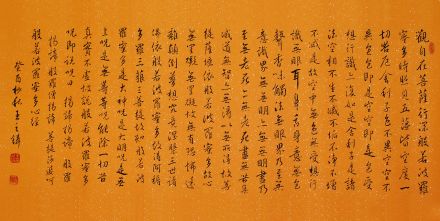 觀自在菩薩行深般若波羅
蜜多時照見五蘊皆空度一
切苦厄舍利子色不異空空不
異色色即是空空即是色受
想行識亦復如是舍利子是諸
法空相不生不滅不垢不淨不增
不減是故空中無色無受想行
識無眼耳鼻舌身意無色
聲香味觸法無眼界乃至無
意識界無無明亦無無明盡乃
至無老死亦無老死盡無苦集
滅道無智亦無得以無所得故菩
提薩埵依般若波羅蜜多故心
無罣礙無罣礙故無有恐怖遠
離顛倒夢想究竟涅槃三世諸
佛依般若波羅蜜多故得阿耨
多羅三藐三菩提故知般若波
羅蜜多是大神呪是大明呪是無
上呪是無等等呪能除一切苦
真實不虛故說般若波羅蜜多
呪即說呪曰 揭諦揭諦 般羅
揭諦 般羅僧揭諦 菩提薩婆呵
般若波羅蜜多心經
癸酉 秋 王